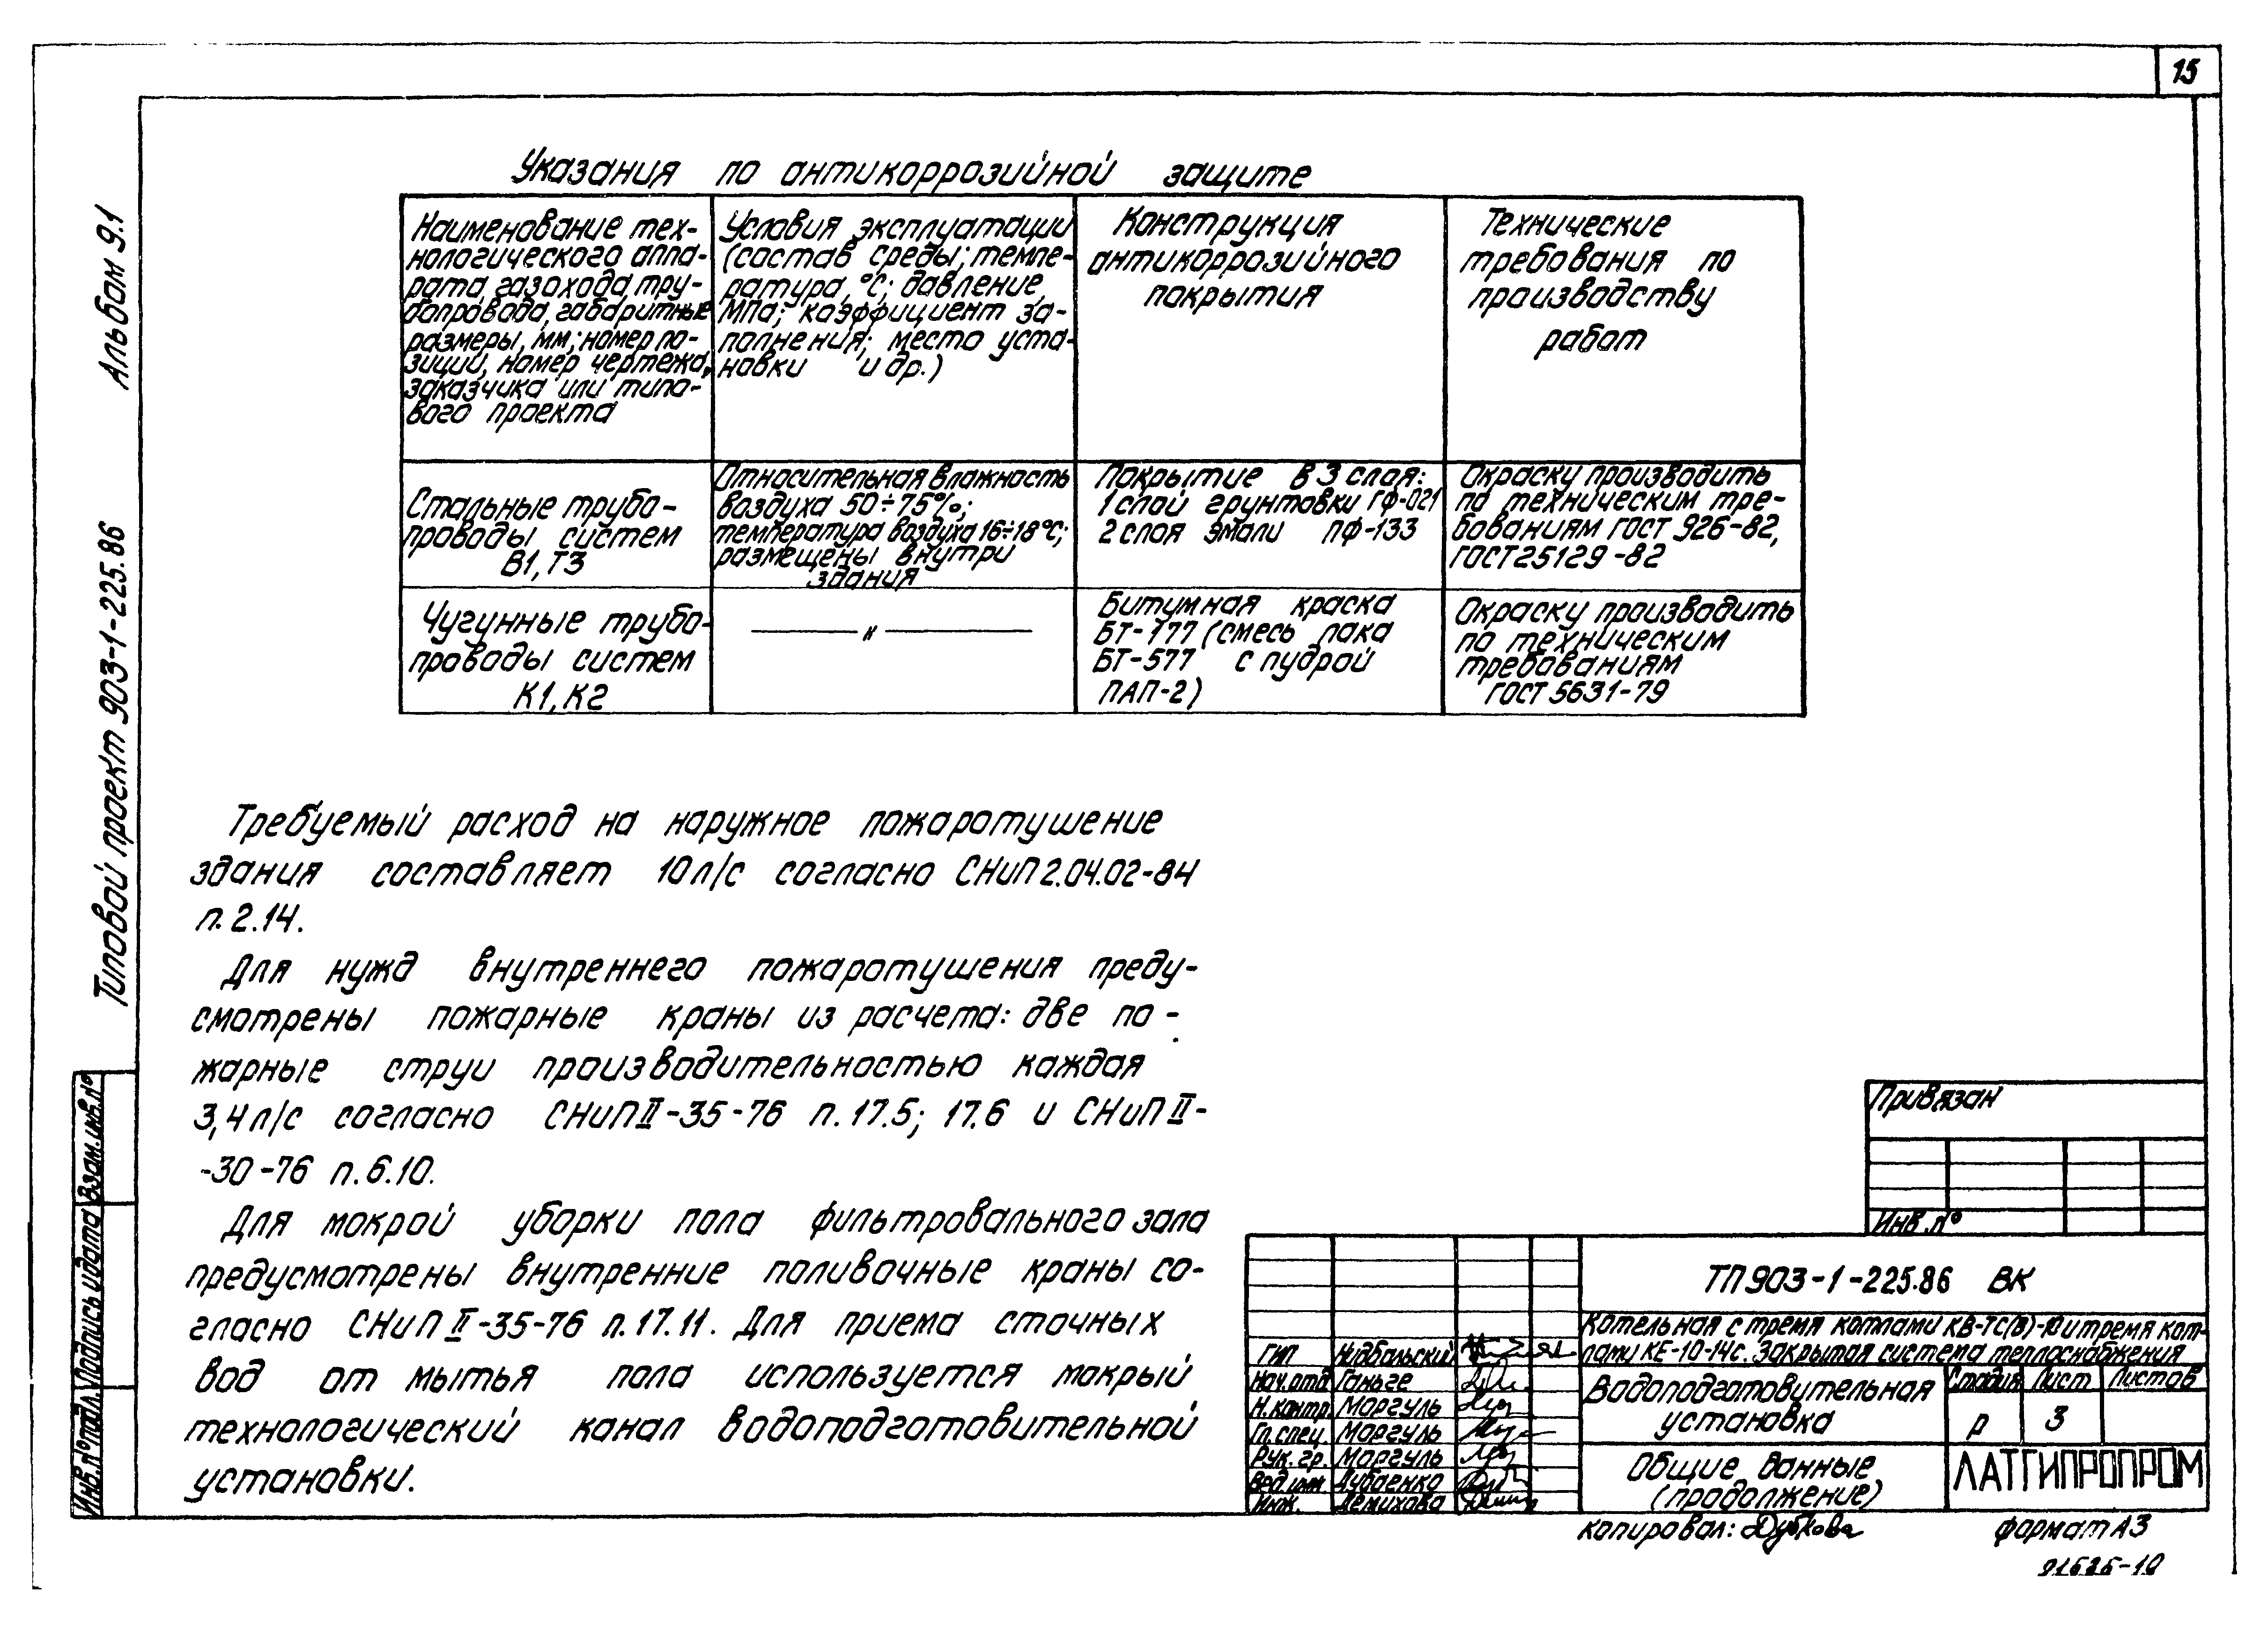 15
Альбом 9.1
Типовой проект 903-1-225.86
Указания по антикоррозийной защите
Наименование тех-
нологического аппа-
рата, газохода, тру-
бопровода, габаритные
размеры, мм; номер по-
зиции, номер чертежа,
заказчика или типо-
вого проекта
Условия эксплуатации
(состав среды; темпе-
ратура, °С; давление,
МПа; коэффициент за-
полнения; место уста-
новки и др.)
Конструкция
антикоррозийного
покрытия
Технические
требования по
производству
работ
Стальные трубо-
проводы систем
В1, Т3
Относительная влажность
воздуха 50÷75%;
температура воздуха 16÷18°С;
размещены внутри
здания
Покрытие в 3 слоя:
1 слой грунтовки ГФ-021
2 слоя эмали ПФ-133
Окраску производить
по техническим тре-
бованиям ГОСТ 926-82,
ГОСТ 25129-82
Чугунные трубо-
проводы систем
К1, К2
— " —
Битумная краска
БТ-177 (смесь лака
БТ-577 с пудрой
ПАП-2)
Окраску производить
по техническим
требованиям
ГОСТ 5631-79
Требуемый расход на наружное пожаротушение
здания составляет 10 л/с согласно СНиП 2.04.02-84
п. 2.14.
Для нужд внутреннего пожаротушения преду-
смотрены пожарные краны из расчета: две по-
жарные струи производительностью каждая
3,4 л/с согласно СНиП II-35-76 п. 17.5; 17.6 и СНиП II-
-30-76 п. 6.10.
Для мокрой уборки пола фильтровального зала
предусмотрены внутренние поливочные краны со-
гласно СНиП II-35-76 п. 17.11. Для приема сточных
вод от мытья пола используется мокрый
технологический канал водоподготовительной
установки.
Взам. инв. №
Подпись и дата
Инв. № подл.
Привязан
Инв. №
ТП 903-1-225.86 ВК
Котельная с тремя котлами КВ-ТС(В)-10 и тремя кот-
лами КЕ-10-14с. Закрытая система теплоснабжения
ГИП Нидбальский
Нач. отд. Ганьге
Н. контр. Моргуль
Гл. спец. Моргуль
Рук. гр. Моргуль
Вед. инж. Дубаенко
Инж. Демихова
Водоподготовительная
установка
Стадия Лист Листов
Р 3
Общие данные
(продолжение)
ЛАТГИПРОПРОМ
Копировал: Дубкова
формат А3